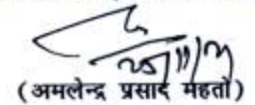 (अमलेन्द्र प्रसाद महतो)